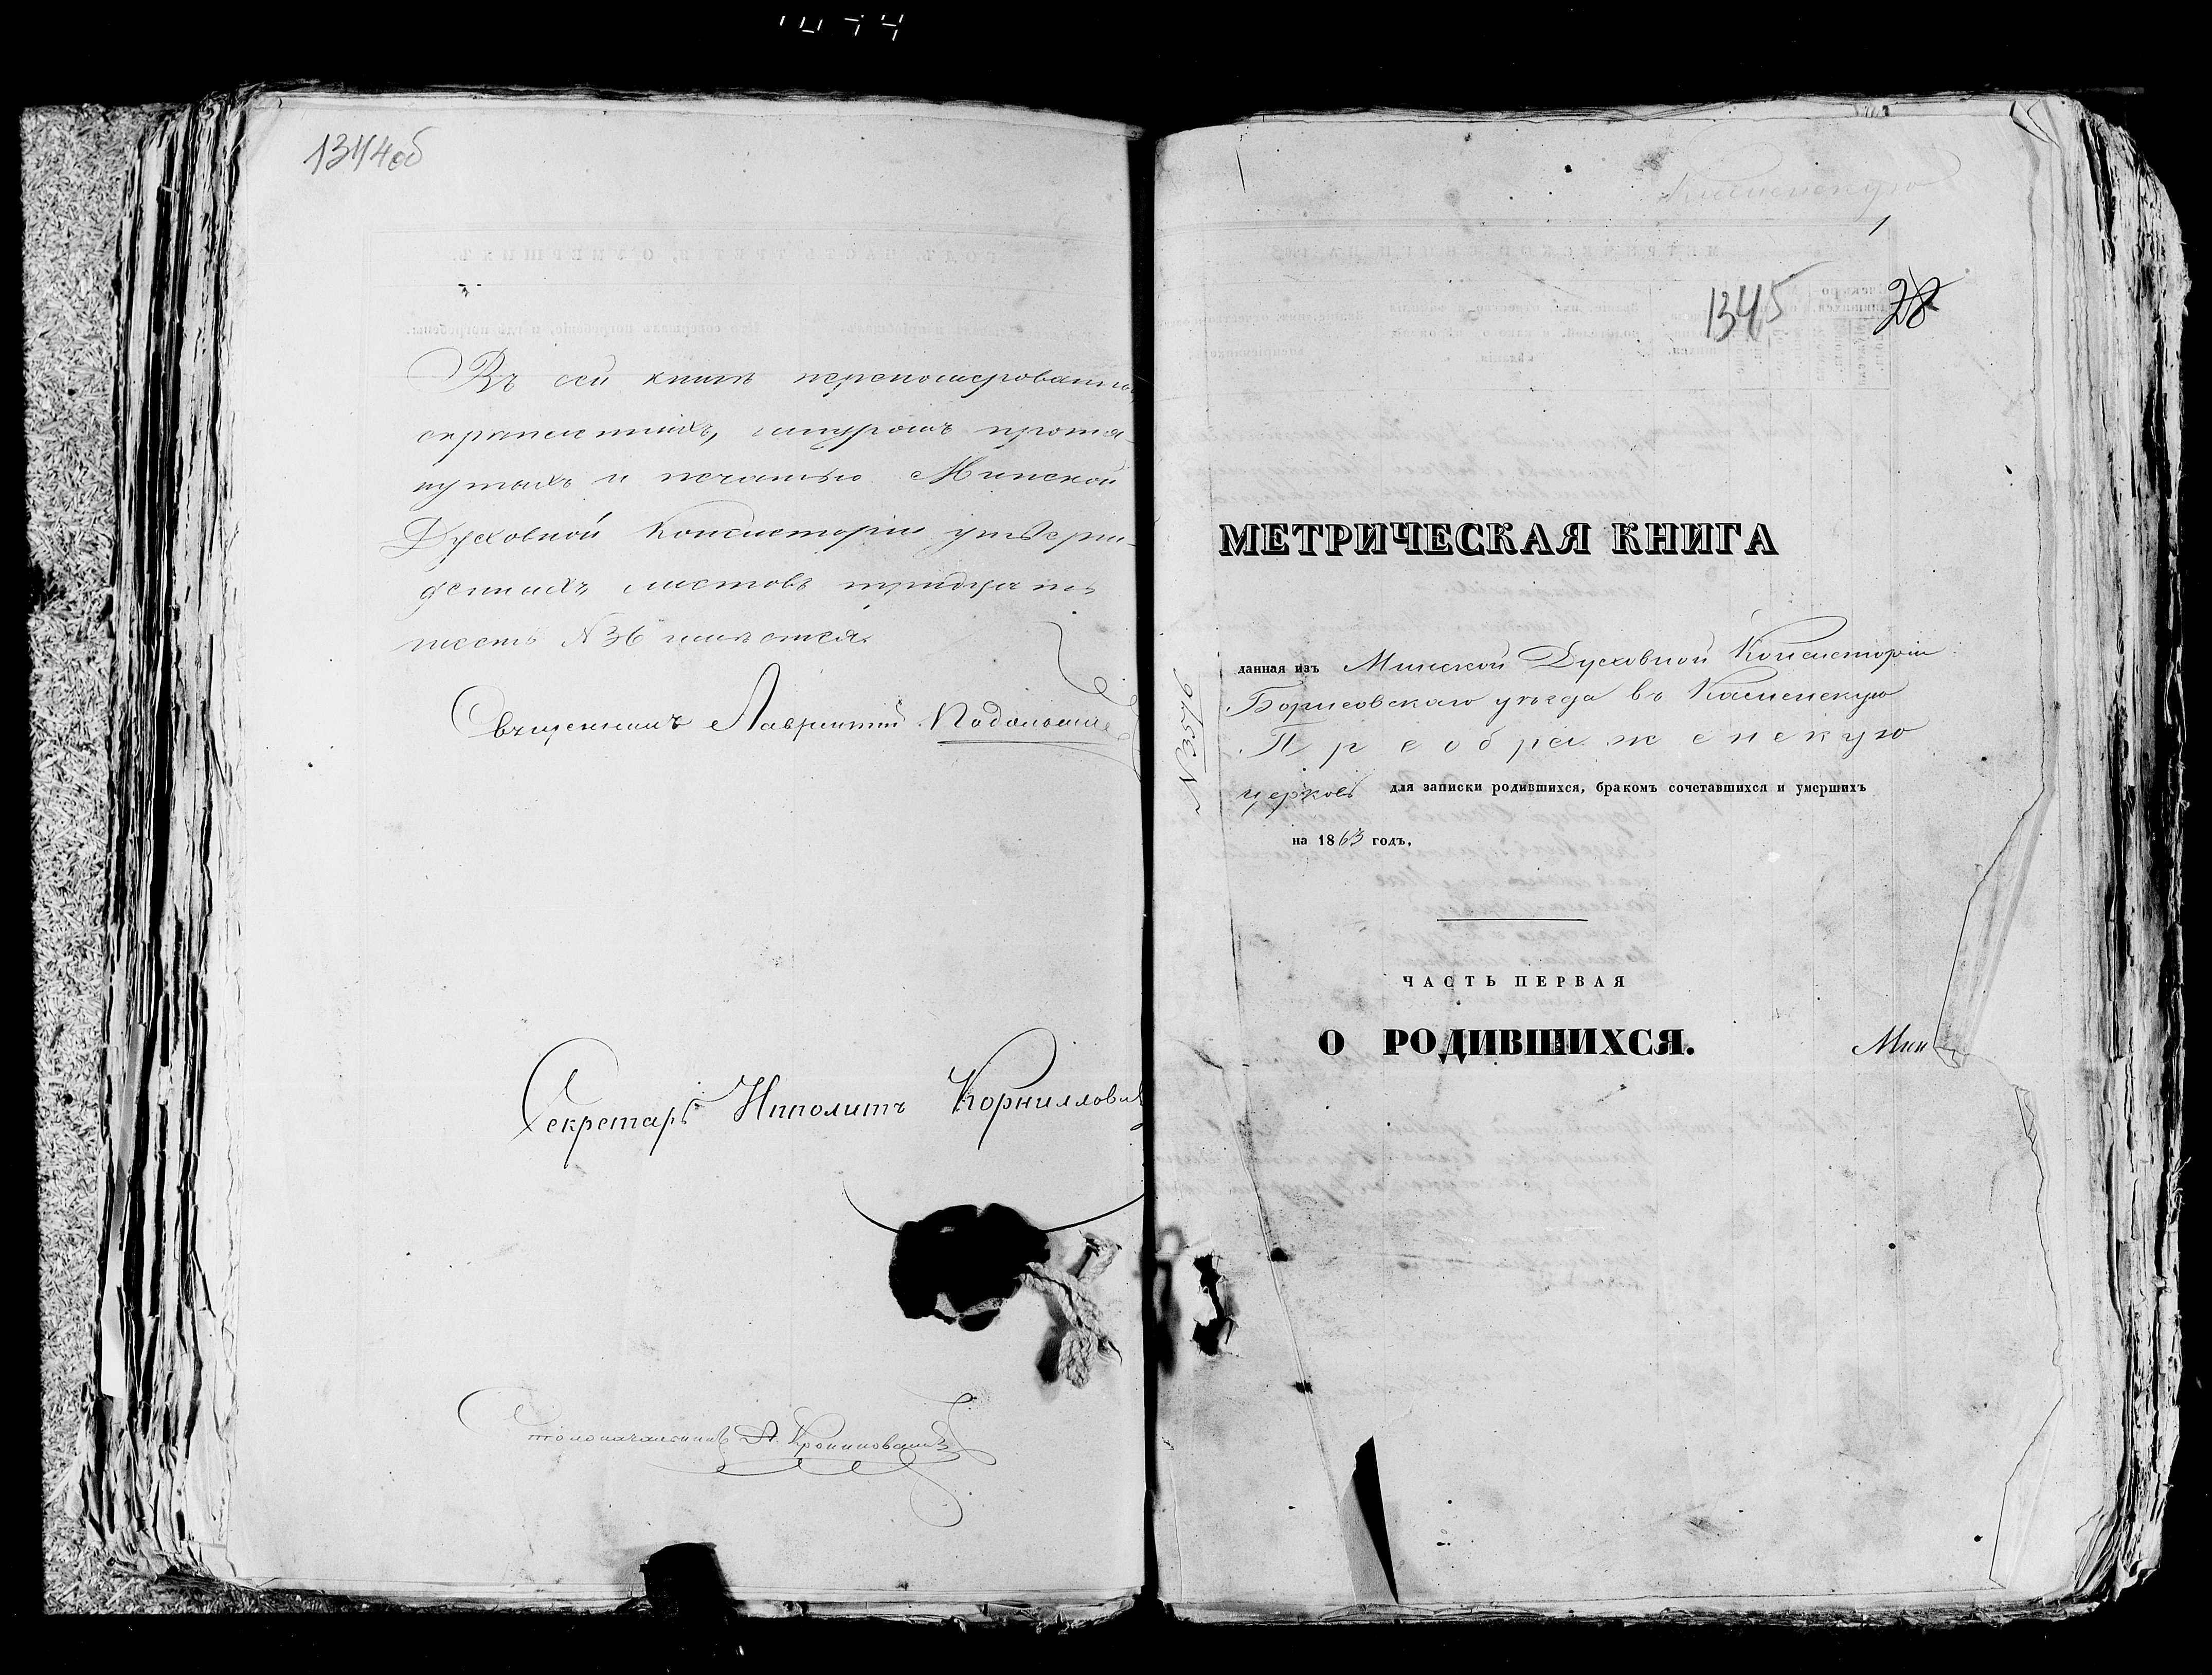 1344об
Въ сей книгѣ переномерованныхъ
скрѣпленныхъ, шнуромъ протя-
нутыхъ и печатью Минской
Духовной Консисторіи утверж-
денныхъ листовъ тридцать
шесть № 36 имѣется.
Священникъ Лаврентій
Секретарь Ипполитъ Корниллови
Столоначальникъ
Каменскую
1345
28
МЕТРИЧЕСКАЯ КНИГА
данная изъ Минской Духовной Консисторіи
Борисовскаго уѣзда въ Каменскую
Преображенскую
церковь для записки родившихся, бракомъ сочетавшихся и умершихъ
на 1863 годъ.
№ 3576
ЧАСТЬ ПЕРВАЯ
О РОДИВШИХСЯ.
Мин